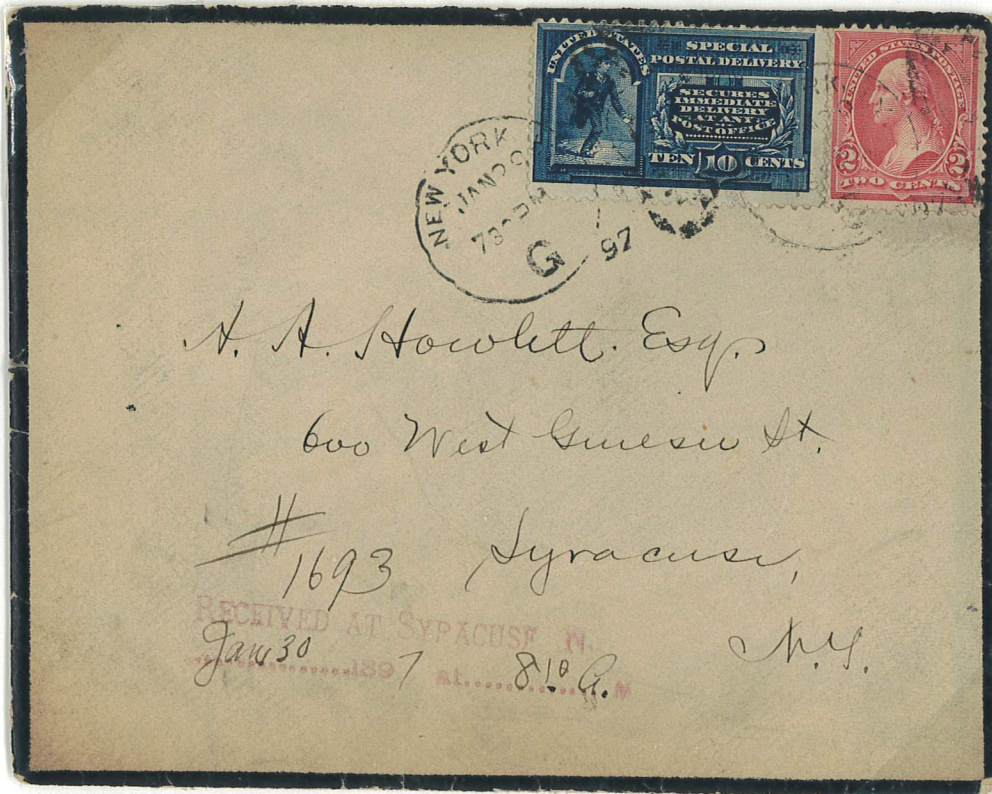 UNITED STATES
SPECIAL
POSTAL DELIVERY
SECURES
IMMEDIATE
DELIVERY
AT ANY
POST OFFICE
TEN 10 CENTS
UNITED STATES POSTAGE
2 2
TWO CENTS
NEW YORK
JAN 29
730 PM
97
G
A. A. Howlett. Esq.
600 West Genesee St.
# 1693 Syracuse,
N.Y.
RECEIVED AT SYRACUSE N.
Jan 30 1897 at 8 10 A. M